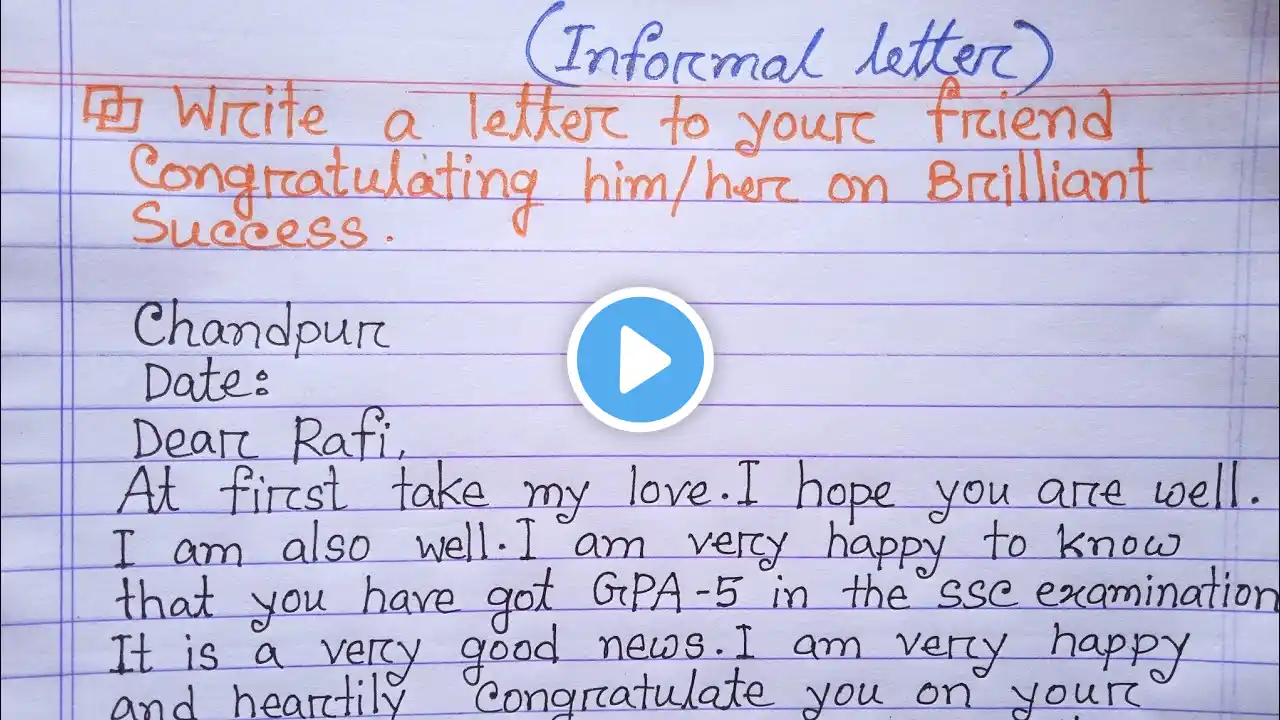 (Informal letter)
Write a letter to your friend
Congratulating him/her on Brilliant
Success.
Chandpur
Date:
Dear Rafi,
At first take my love. I hope you are well.
I am also well. I am very happy to know
that you have got GPA-5 in the SSC examination
It is a very good news. I am very happy
and heartily Congratulate you on your